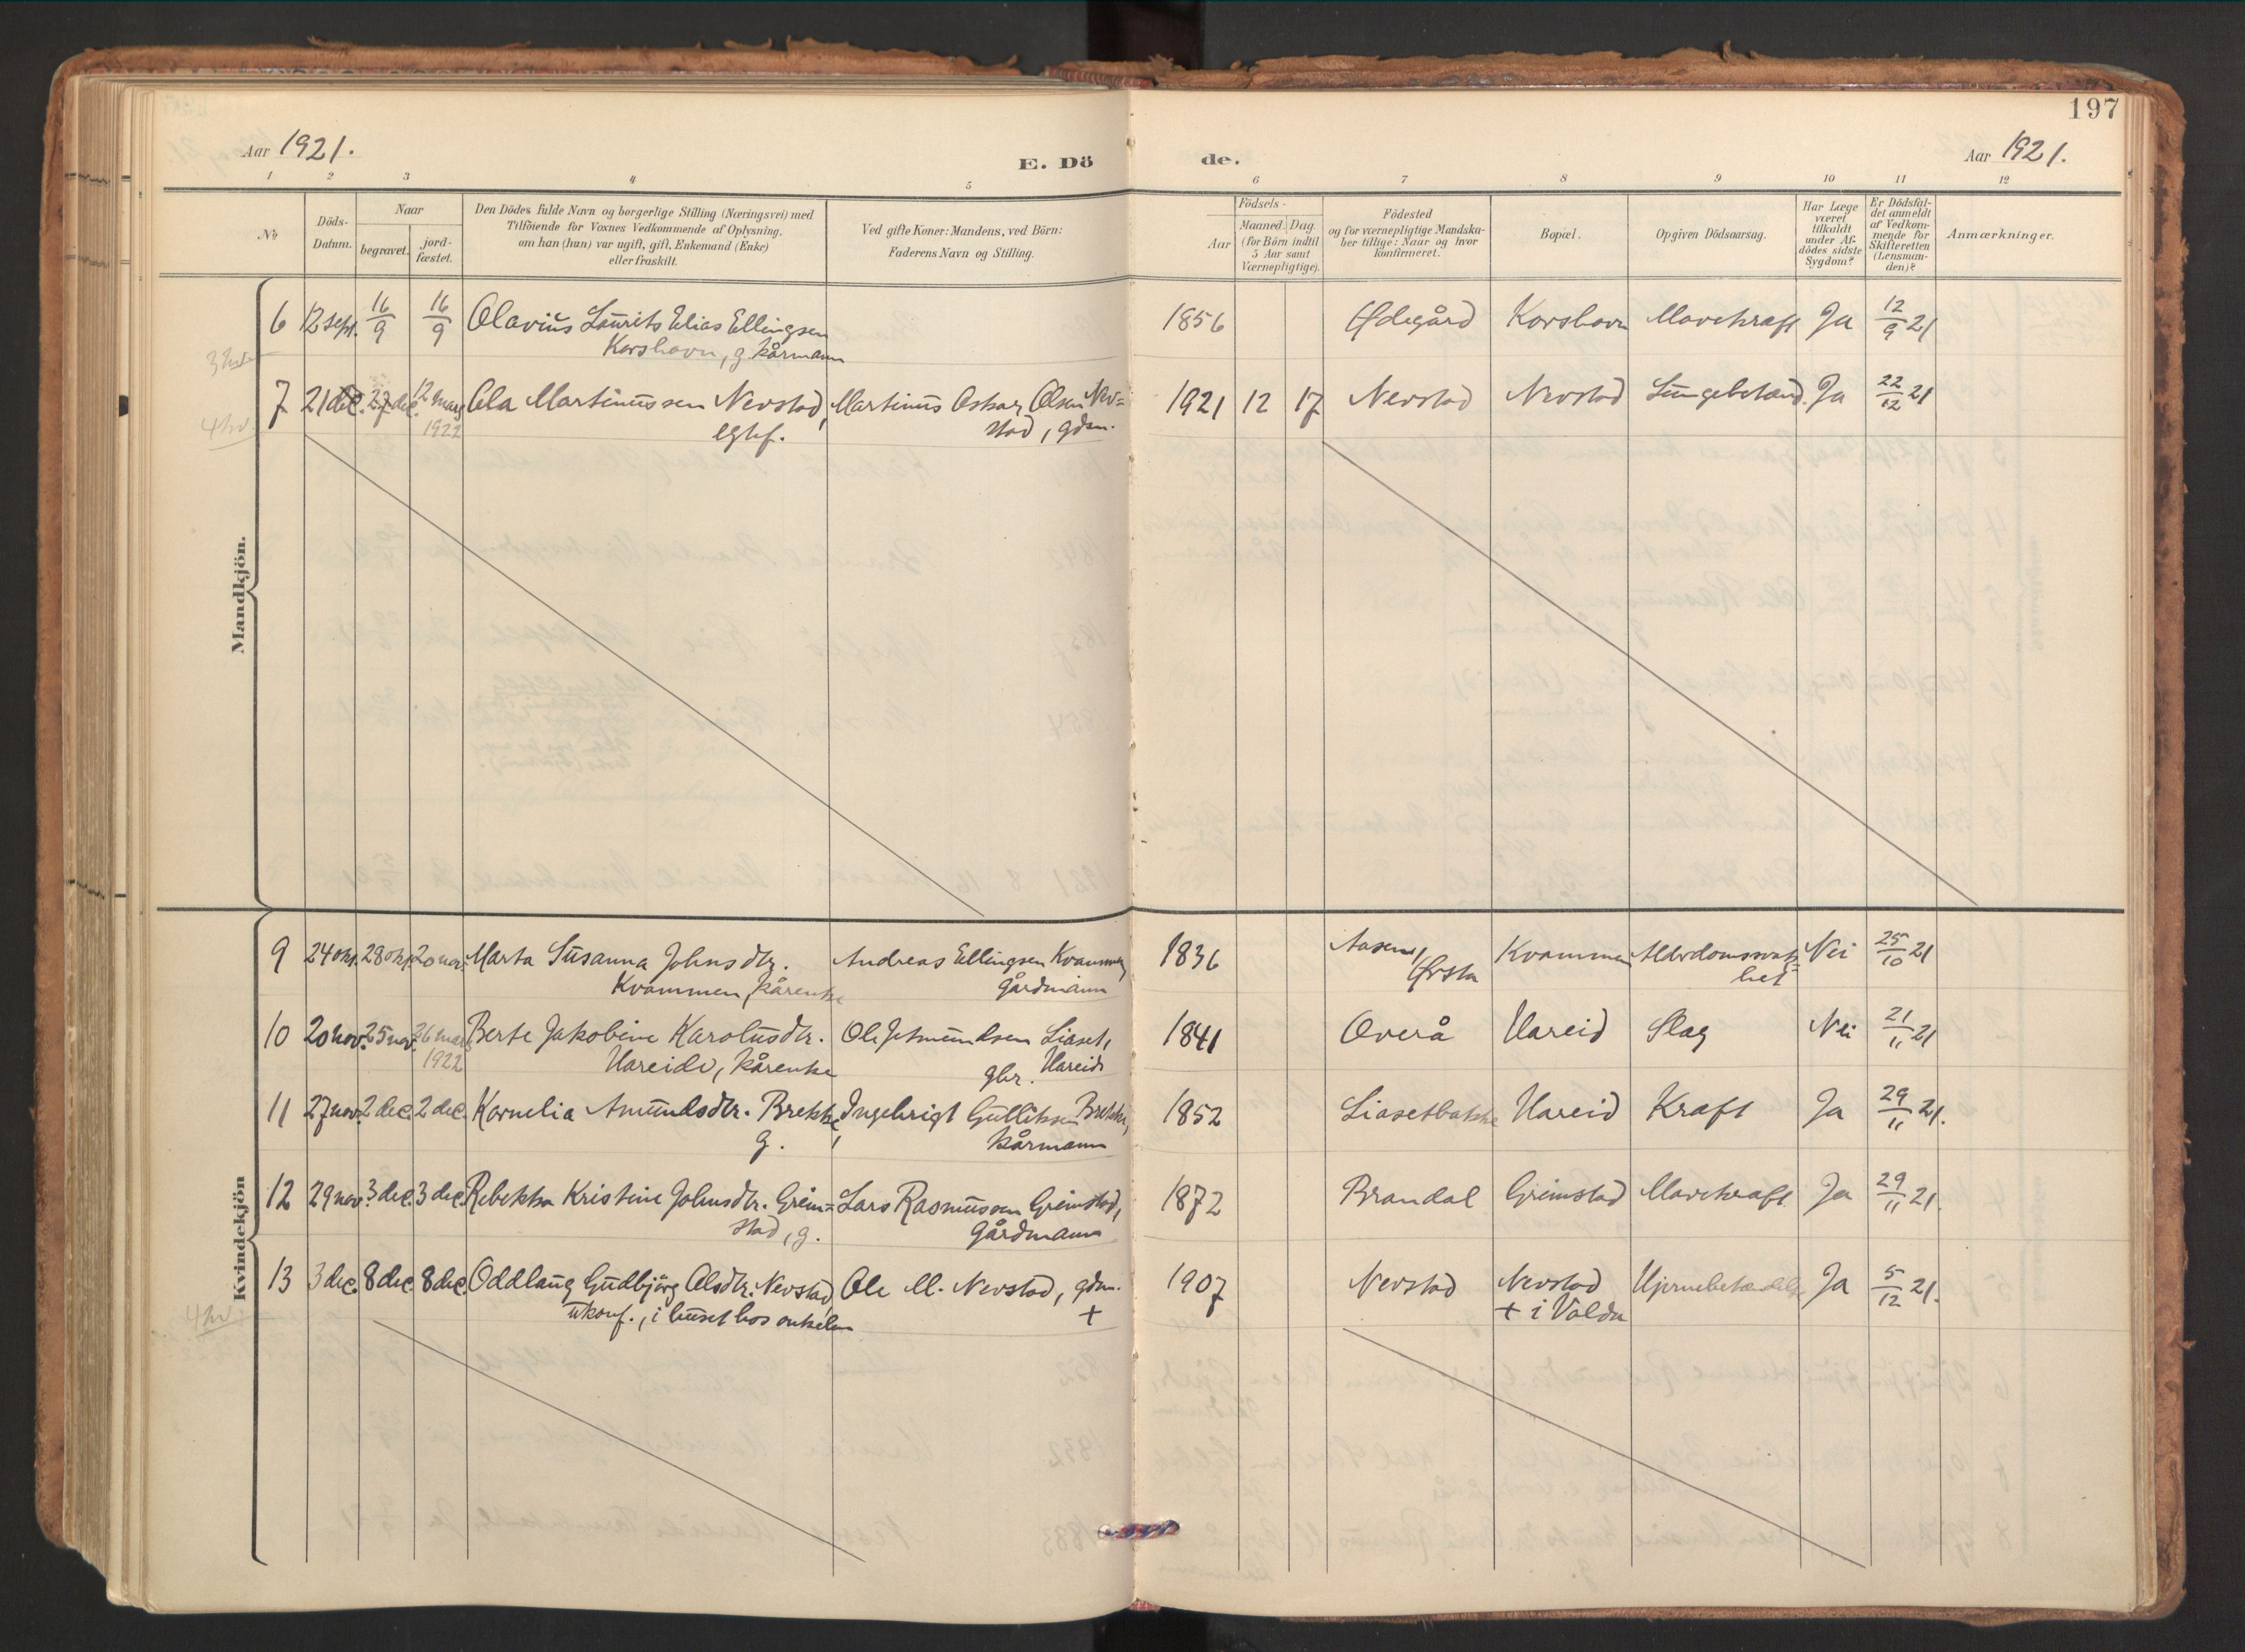 197
Aar 1921.
E. Dö
de.
Aar 1921.
1 2 3 4 5 6 7 8 9 10 11 12
No
Döds-
Datum.
Naar
begravet.
jord-
fæstet.
Den Dödes fulde Navn og borgerlige Stilling (Næringsvei) med
Tilföiende for Voxnes Vedkommende af Oplysning,
om han (hun) var ugift, gift, Enkemand (Enke)
eller fraskilt.
Ved gifte Koner: Mandens, ved Börn:
Faderens Navn og Stilling.
Födsels-
Aar
Maaned. Dag.
(for Börn indtil
5 Aar samt
Værnepligtige).
Födested
og for værnepligtige Mandska-
ber tillige: Naar og hvor
konfirmeret.
Bopæl.
Opgiven Dödsaarsag.
Har Læge
været
tilkaldt
under Af-
dödes sidste
Sygdom?
Er Dödsfal-
det anmeldt
af Vedkom-
mende for
Skifteretten
(Lensman-
den)?
Anmærkninger.
Mandkjön.
6 12 sept. 16/9 16/9 Olavius Laurits Elias Ellingsen 1856 Ødegård Korshavn Mavekraft Ja 12/9 21
Korshavn, g. kårmann
7 21 dec. 27 dec. 12 mars Ola Martinussen Nevstad, Martinus Oskar Olsen Nev= 1921 12 17 Nevstad Nevstad Lungebetænd. Ja 22/12 21
4 hv. 1922 egtef. stad, gdm.
Kvindekjön
9 24 okt. 28 okt. 20 nov. Marta Susanna Johnsdtr. Andreas Ellingsen Kvammen, 1836 Aasen, Kvammen Alderdomssvak= Nei 25/10 21
Kvammen, kårenke gårdmann Ørsta het
10 20 nov. 25 nov. 26 mars Berte Jakobine Karolusdtr. Ole Jetmundsen Liaset, 1841 Overå Hareid Slag Nei 21/11 21
1922 Hareide, kårenke gbr. Hareide
11 27 nov. 2 dec. 2 dec. Kornelia Amundsdtr. Brekke, Ingebrigt Gulliksen Brekke, 1852 Liasetbakke Hareid Kraft Ja 29/11 21.
g. kårmann
12 29 nov. 3 dec. 3 dec. Rebekka Kristine Johnsdtr. Grim= Lars Rasmussen Grimstad, 1872 Brandal Grimstad Mavekraft Ja 29/11 21.
stad, g. gårdmann
13 3 dec. 8 dec. 8 dec. Oddlaug Gudbjörg Olsdtr. Nevstad, Ole M. Nevstad, gdm. 1907 Nevstad Nevstad Hjernebetændelse Ja 5/12 21.
4 hv ukonf., i huset hos onkelen + + i Volda